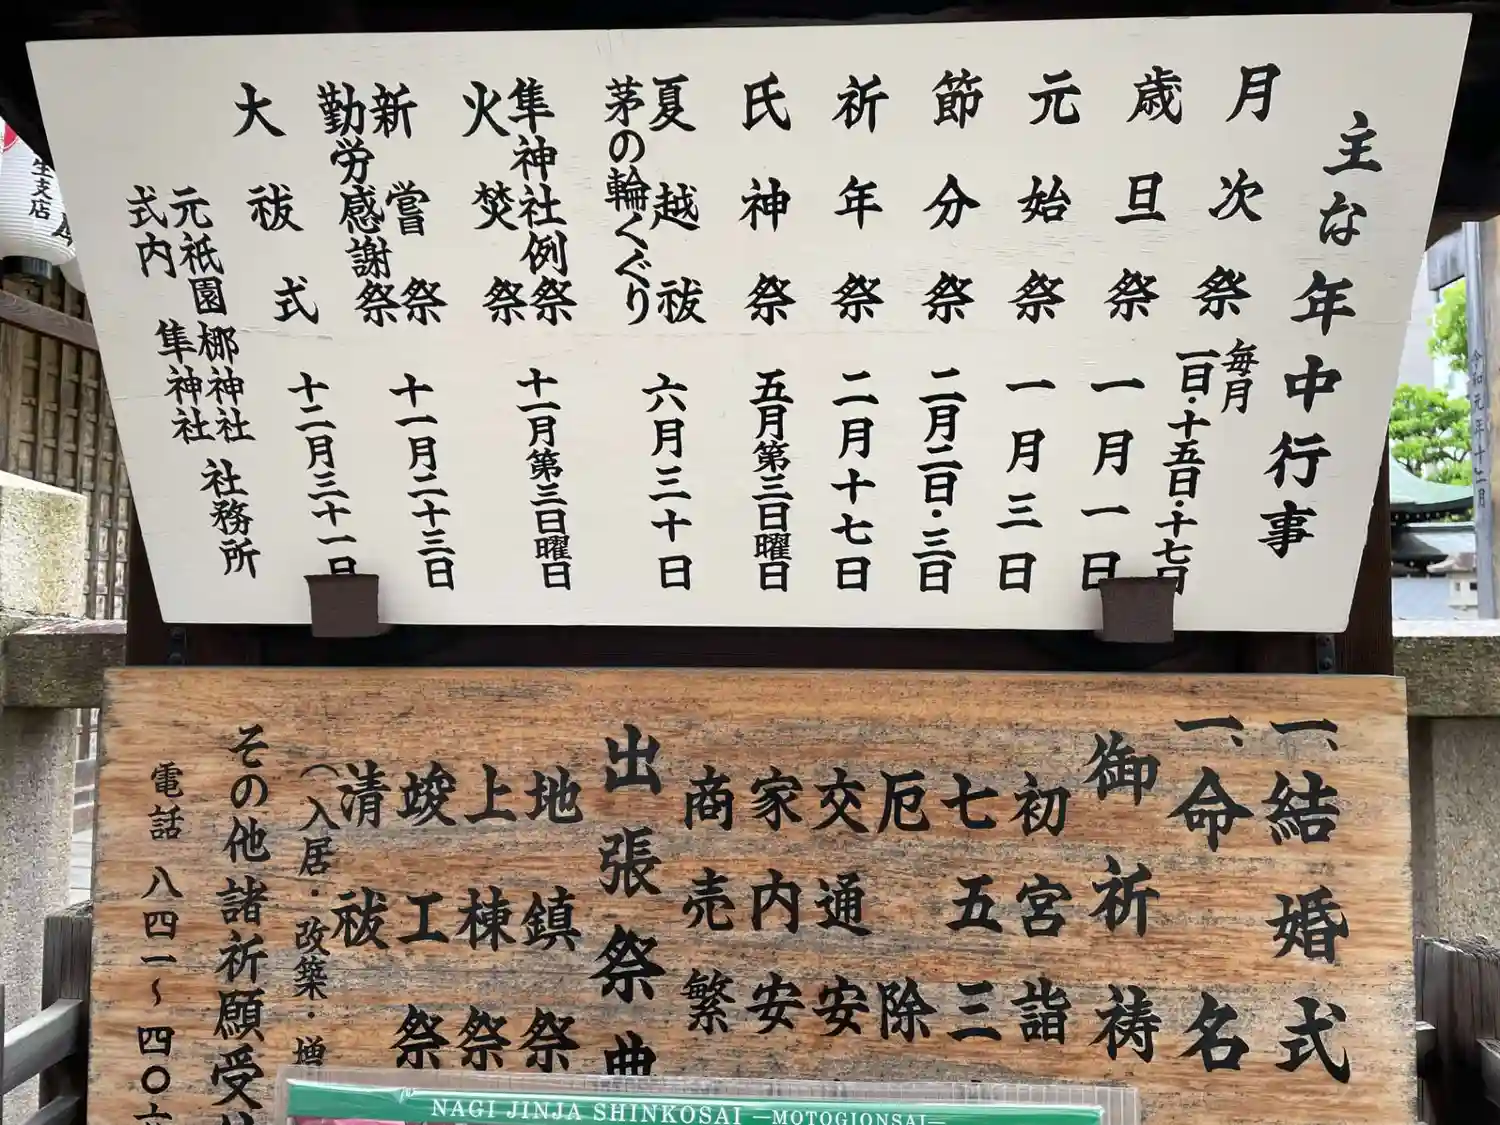 主な年中行事
月次祭 毎月 一日・十五日・十七日
歳旦祭 一月一日
元始祭 一月三日
節分祭 二月二日・三日
祈年祭 二月十七日
氏神祭 五月第三日曜日
夏越祓 六月三十日
茅の輪くぐり
隼神社例祭 十一月第三日曜日
火焚祭
新嘗祭 十一月二十三日
勤労感謝祭
大祓式 十二月三十一日
元祇園梛神社 社務所
式内隼神社
一、結婚式
一、命名
御祈祷
初宮詣
七五三
厄除
交通安
家内安
商売繁
出張祭典
地鎮祭
上棟祭
竣工祭
清祓
(入居・改築・増
その他諸祈願受
電話 八四一〜四〇
NAGI JINJA SHINKOSAI —MOTOGIONSAI—
生支店
令和元年十二月